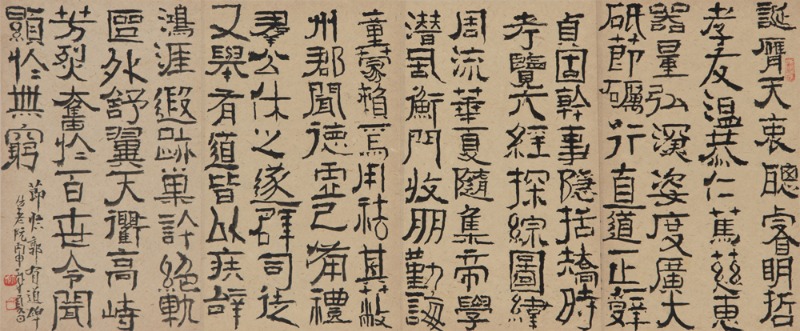 誕膺天衷聰睿明哲
孝友温恭仁篤慈惠
器量弘深姿度廣大
砥節礪行直道正辭
貞固幹事隱括矯時
考覽六經探綜圖緯
周流華夏隨集帝學
潜風衡門收朋勤誨
童蒙賴焉用祛其蔽
州郡聞德虛己備禮
羣公休之遂辟司徒
又舉有道皆以疾辭
鴻涯遐跡巢許絶軌
區外舒翼天衢高峙
芳烈奮於百世令聞
顯於無窮
節臨郭有道碑
丙申夏日